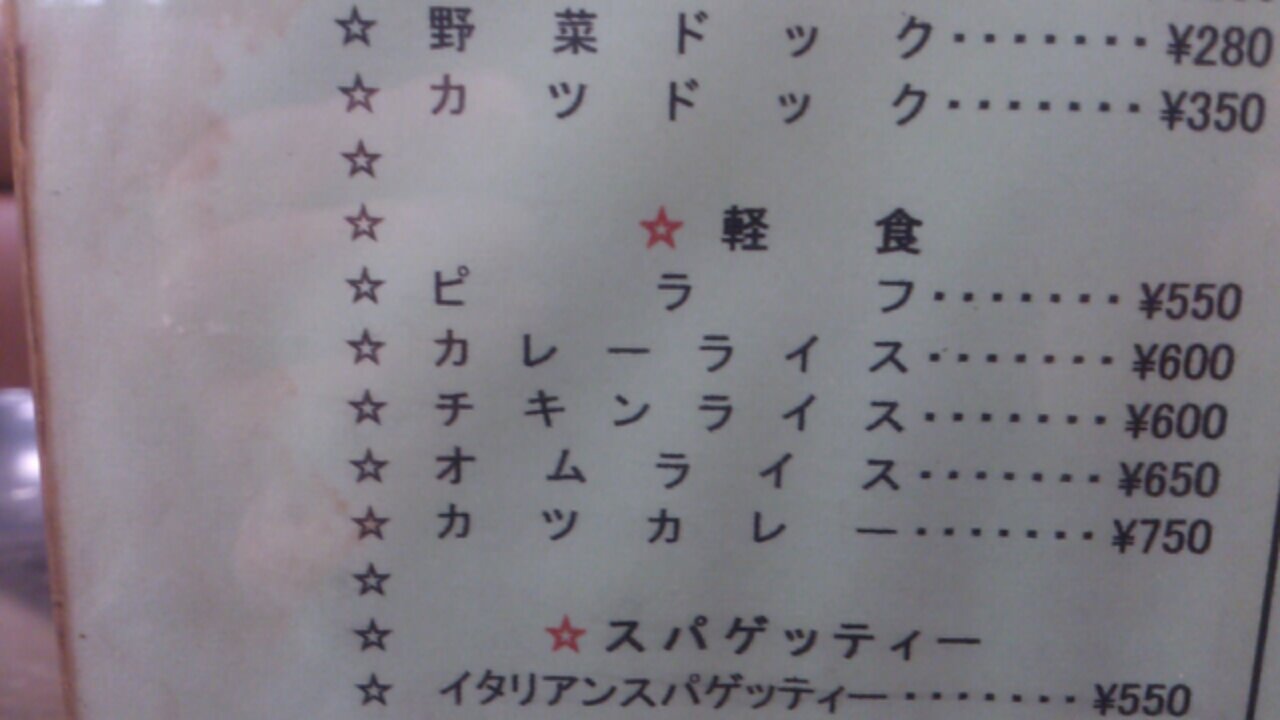 ☆ 野菜ドック・・・・・・・¥280
☆ カツドック・・・・・・・¥350
☆
☆ ☆軽食
☆ ピラフ・・・・・・・¥550
☆ カレーライス・・・・・・・¥600
☆ チキンライス・・・・・・・¥600
☆ オムライス・・・・・・・¥650
☆ カツカレー・・・・・・・¥750
☆
☆ ☆スパゲッティー
☆ イタリアンスパゲッティー・・・・・・・¥550